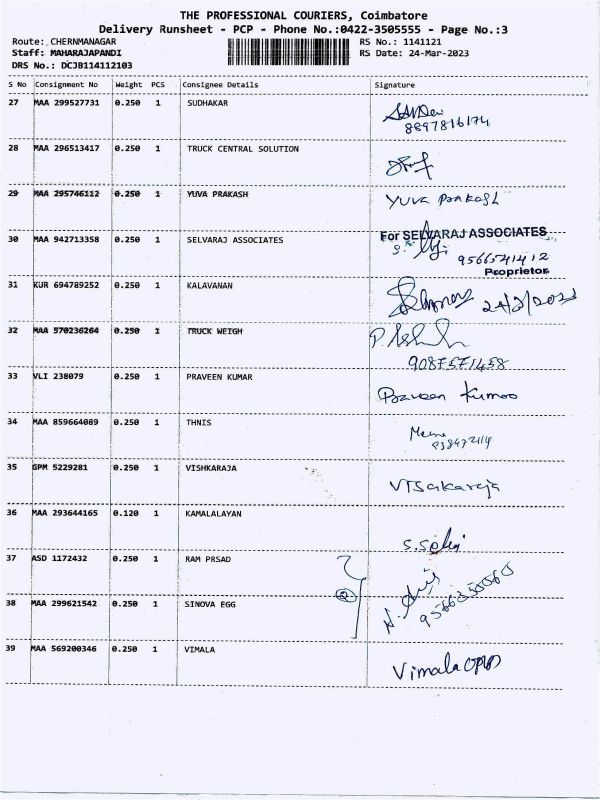 THE PROFESSIONAL COURIERS, Coimbatore
Delivery Runsheet - PCP - Phone No.:0422-3505555 - Page No.:3
Route: CHERNMANAGAR RS No.: 1141121
Staff: MAHARAJAPANDI RS Date: 24-Mar-2023
DRS No.: DCJB114112103
S No Consignment No Weight PCS Consignee Details Signature
27 MAA 299527731 0.250 1 SUDHAKAR
8897816174
28 MAA 296513417 0.250 1 TRUCK CENTRAL SOLUTION
29 MAA 295746112 0.250 1 YUVA PRAKASH YUVA Prakash
30 MAA 942713358 0.250 1 SELVARAJ ASSOCIATES For SELVARAJ ASSOCIATES
9566541412
Proprietor
31 KUR 694789252 0.250 1 KALAVANAN 24/3/2023
32 MAA 570236264 0.250 1 TRUCK WEIGH
9087571458
33 VLI 238079 0.250 1 PRAVEEN KUMAR Praveen Kumar
34 MAA 859664089 0.250 1 THNIS
35 GPM 5229281 0.250 1 VISHKARAJA VISakaraja
36 MAA 293644165 0.120 1 KAMALALAYAN
37 ASD 1172432 0.250 1 RAM PRSAD
38 MAA 299621542 0.250 1 SINOVA EGG
39 MAA 569200346 0.250 1 VIMALA Vimala